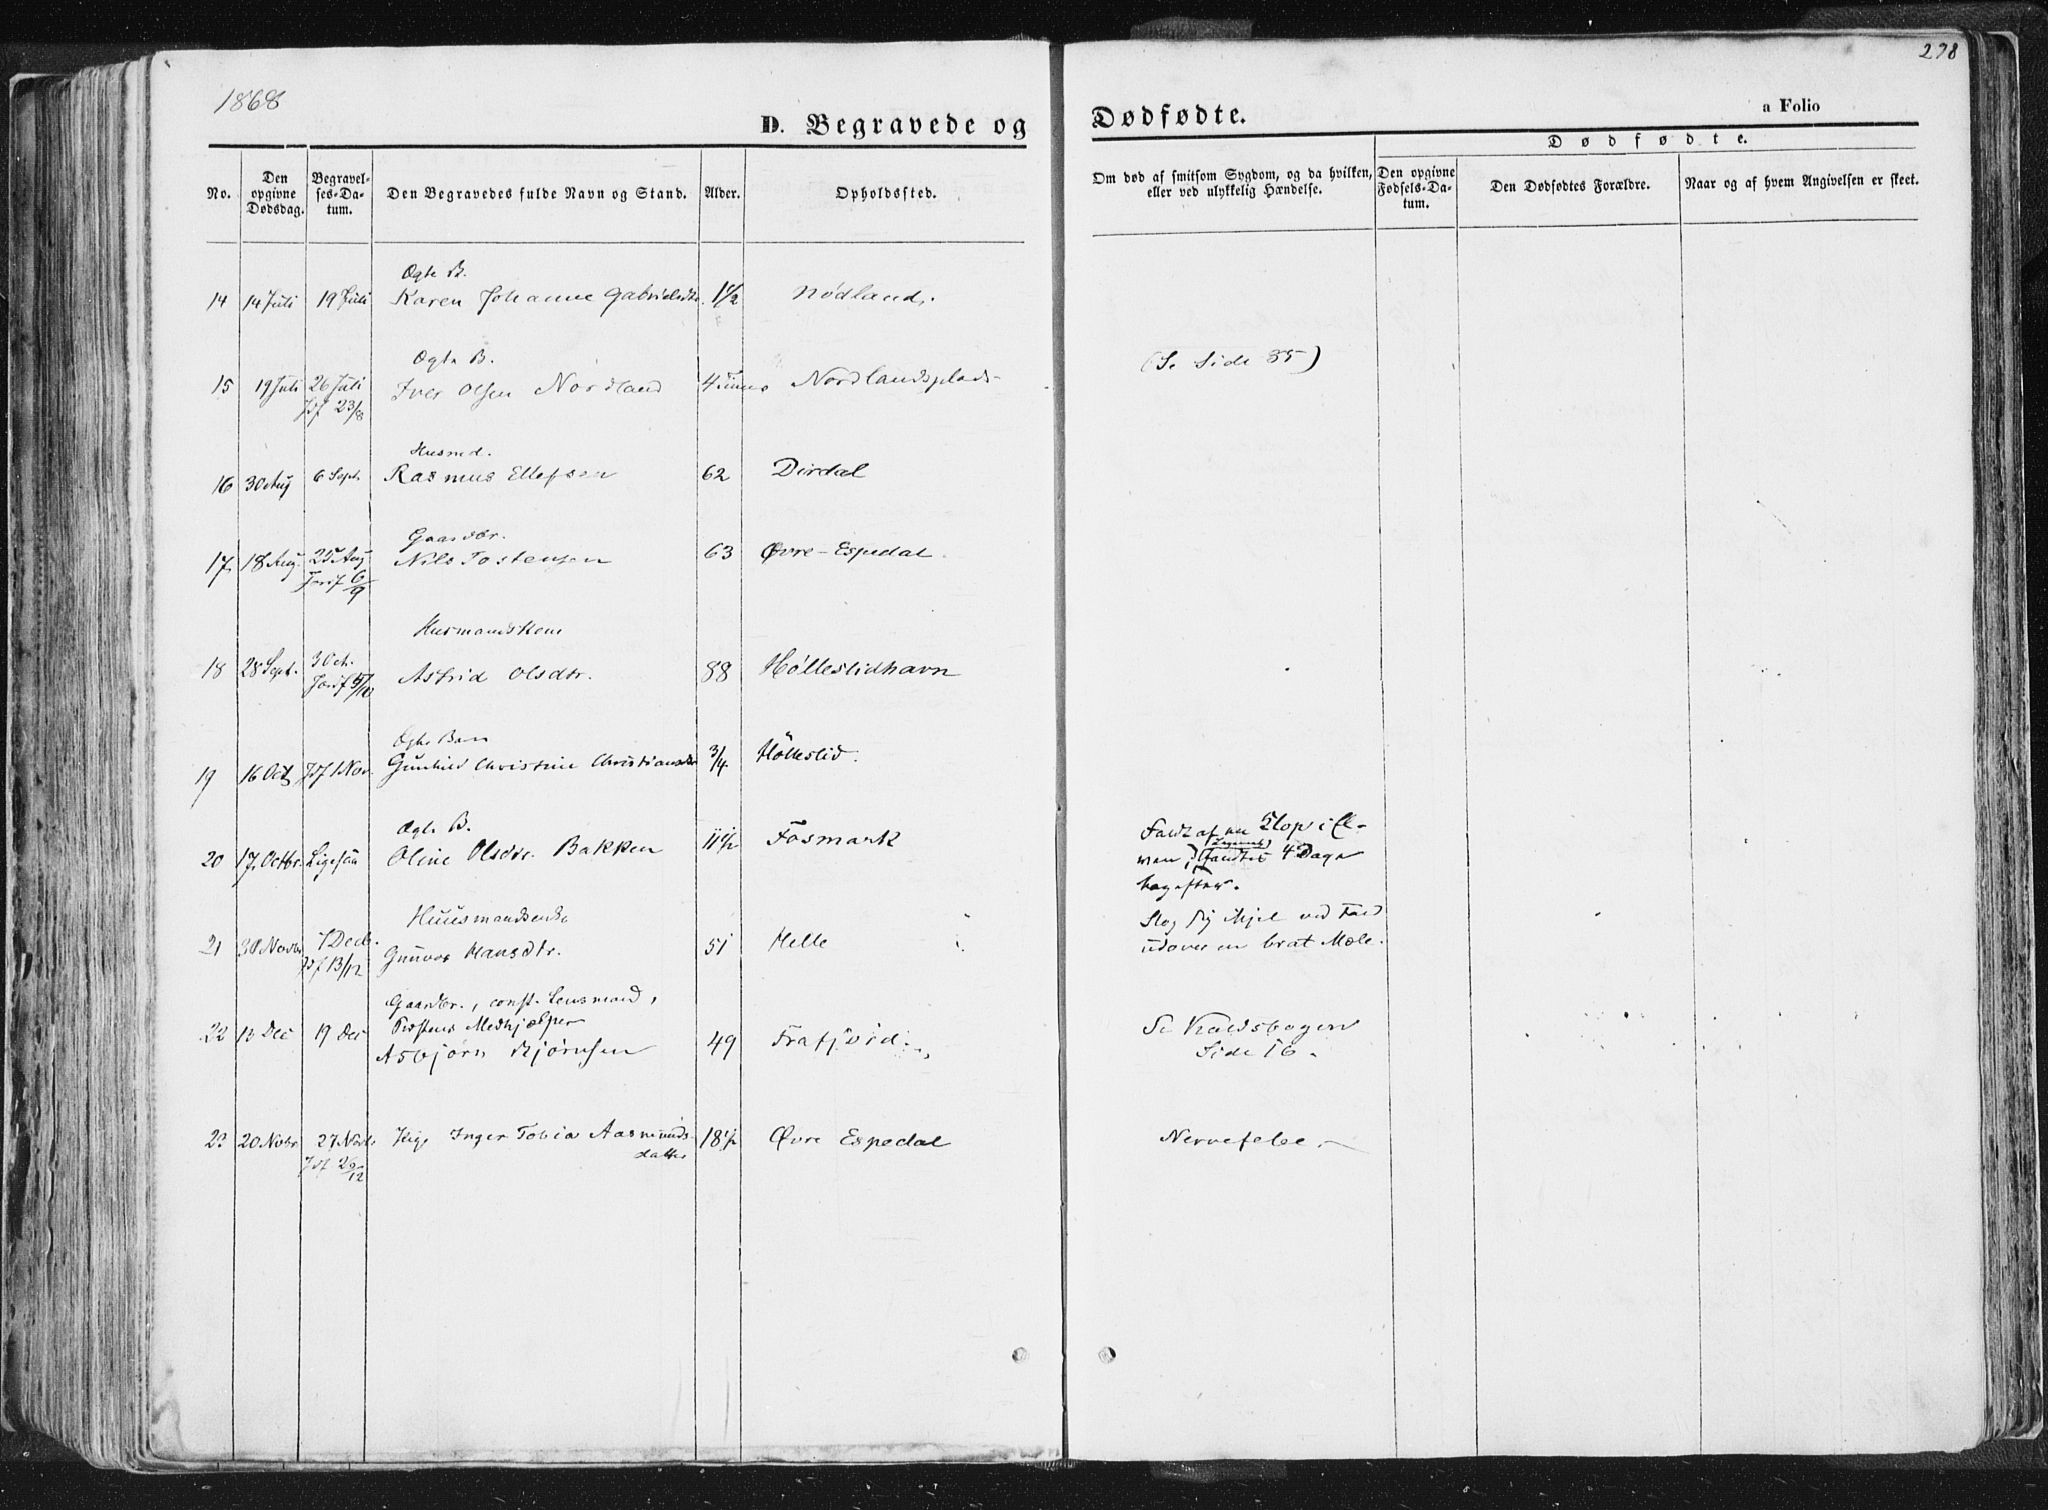 278
1868
D. Begravede og Dødfødte.
a Folio
Dødfødte.
No.
Den opgivne Dødsdag.
Begravelses-Datum.
Den Begravedes fulde Navn og Stand.
Alder.
Opholdssted.
Om død af smitsom Sygdom, og da hvilken, eller ved ulykkelig Hændelse.
Den opgivne Fødsels-Datum.
Den Dødfødtes Forældre.
Naar og af hvem Angivelsen er skeet.
Ægte B.
14 14 Juli 19 Juli Karen Johanne Gabrielsdtr. 1 1/2 Nødland.
Ægte B. (Se Side 35)
15 19 Juli 26 Juli Iver Olsen Nordland 4 Nordlandsplads
Jdf 23/8
Husmd.
16 30 Aug 6 Sept. Rasmus Ellefsen 62 Dirdal
Gaardbr.
17. 18 Aug. 25 Aug Nils Tostensen 63 Øvre-Espedal.
Jordf 6/9
Husmandskone
18 28 Sept. 3 Oct. Astrid Olsdtr. 88 Hølleslidhavn
Jordf 5/10
Ægte Barn
19 16 Oct Jdf 1 Nov. Gunhild Christine Christiansdtr 3/4 Hölleslid.
Ægte B. Faldt af en Slop i El-
20 17. Octbr. Ligesaa Oline Olsdtr. Bakken 11 1/2 Fosmark ven, fandtes 4 Dage
bagefter.
Huusmandsenke Slog sig ihjel ved Fald
21 30 Novbr 7 Decb. Gunvor Hansdtr. 51 Helle udover en brat Mæle.
Jdf 13/12
Gaardbr., const. Lensmand,
22 13 Dec 19 Dec Præstens Medhjælper Se Kaldsbogen
Asbjørn Bjørnsen 49 Frafjord. Side 16.
23 20 Novbr 27 Novbr Pige Inger Tobia Aasmunds- 18 1/2 Øvre Espedal Nervefeber
Jdf 26/12 datter